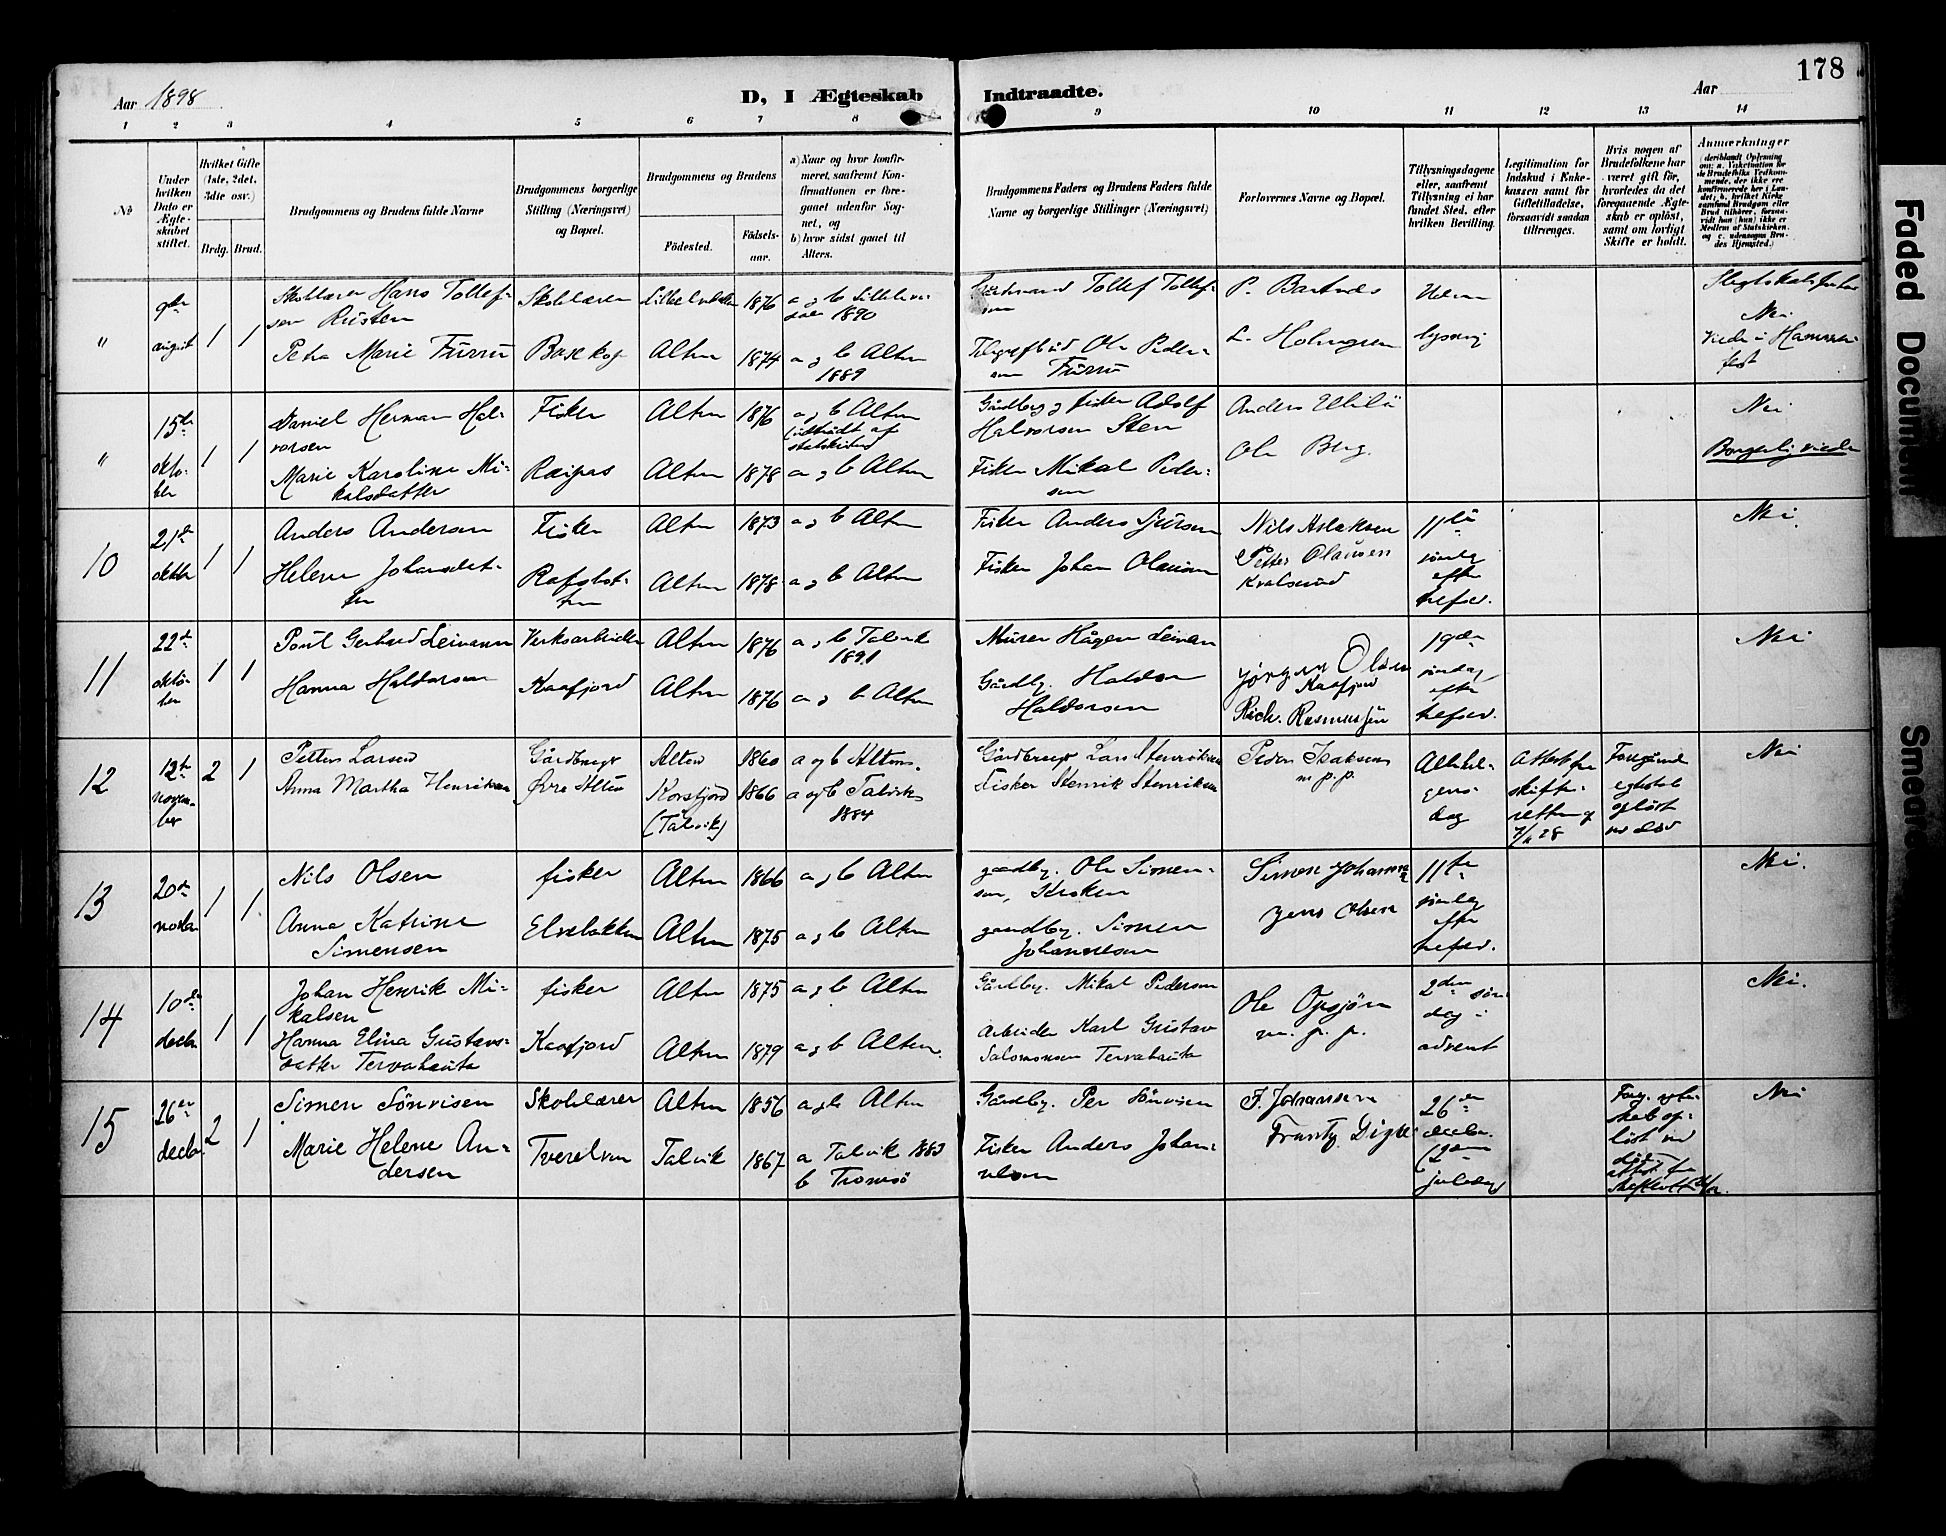 178
Aar 1898
D, I Ægteskab Indtraadte.
Aar
1 2 3 4 5 6 7 8 9 10 11 12 13 14
No
Under
hvilken
Dato er
Ægte-
skabet
stiftet.
Hvilket Gifte
(1ste, 2det,
3die osv.)
Brdg. Brud.
Brudgommens og Brudens fulde Navne
Brudgommens borgerlige
Stilling (Næringsvei)
og Bopæl.
Brudgommens og Brudens
Födested.
Födsels-
aar.
a) Naar og hvor konfir-
meret, saafremt Kon-
firmationen er fore-
gaaet udenfor Sog-
net, og
b) hvor sidst gaaet til
Alters.
Brudgommens Faders og Brudens Faders fulde
Navne og borgerlige Stillinger (Næringsvei)
Forlovernes Navne og Bopæl.
Tillysningsdagene
eller, saafremt
Tillysning ei har
fundet Sted, efter
hvilken Bevilling.
Legitimation for
Indskud i Enke-
kassen samt for
Giftetilladelse,
forsaavidt saadan
tiltrænges.
Hvis nogen af
Brudefolkene har
været gift för,
hvorledes da det
foregaaende Ægte-
skab er oplöst,
samt om lovligt
Skifte er holdt.
Anmærkninger
"
9de
august
1 1
Skolelærer Hans Tollef-
sen Rusten
Petra Marie Furru
Skolelærer
Bosekop
Alten
1876
1874
1890
a og b Alten
1889
Tollef Tollef-
sen
Ole Peder-
sen Furru
L. Holmgren
Uden
lysning
Nei
Viede i Hammer-
fest
"
15de
okto-
ber
1 1
Daniel Herman Hal-
vorsen
Marie Karoline Mi-
kalsdatter
Fisker
Raipas
Alten
Alten
1876
1878
a og b Alten
(udtraadt af
statskirken)
a og b Alten
Gårdbrug. og fisker Adolf
Halvorsen Sten
Fisker Mikal Peder-
sen
Ole Berg.
Nei
Borgerlig viede
10
21de
oktbr
1 1
Anders Andersen
Helene Johansdat-
ter
Fisker
Rafsbot-
ten
Alten
Alten
1873
1878
a og b Alten
a og b Alten
Fisker Anders Sjursen
Fisker Johan Olausen
Nils Aslaksen
Petter Olausen
Kvalsund
11te
søndag
efter
trefold.
Nei.
11
22de
okto-
ber
1 1
Poul Gerhard Leinanen
Hanna Haldorsen
Verksarbeider
Kaafjord
Alten
Alten
1876
1876
a og b Talvik
1891
a og b Alten
Murer Hågen
Gårdbr. Haldor
Haldorsen
Jørgen Olsen
Kaafjord
Rich. Rasmussen
19de
søndag
efter
trefold.
Nei
12
12te
novem-
ber
2 1
Petter Larsen
Anna Martha Henriksen
Gårdbruger
Øvre Alten
Alten
Korsfjord
(Talvik)
1860
1866
a og b Alten.
a og b Talvik
1884
Gårdbruger Lars Henriksen
Fisker Henrik Henriksen
Peder Isaksen
m. p. p.
Allehel-
gens-
dag
Attest fra
skifte-
retten af
Foregående
egteskab
opløst
ved død
Nei
13
20de
novbr
1 1.
Nils Olsen
Anna Katrine
Simensen
fisker
Elvebakken
Alten
Alten
1866
1875
a og b Alten
a og b Alten
gaardbr. Ole Simen-
sen, Kroken
gaardbr. Simen
Johannesen
Simon Johannesen
Jens Olsen
11te
søndag
efter
trefold.
Nei.
14
10de
decbr
1 1
Johan Henrik Mi-
kalsen
Hanna Elina Gustavs-
datter Tervahauta
fisker
Kaafjord
Alten
Alten
1875
1879
a og b Alten
a og b Alten.
Gårdbr. Mikal Pedersen
Arbeider Karl Gustav
Salomonsen Tervahauta
Ole Opsjøn
m. p. p.
2den søn-
dag i
advent
Nei.
15
26de
decbr.
2 1
Simen Sönvisen
Marie Helene An-
dersen
Skolelærer
Tverelven
Alten
Talvik
1856
1867
a og b Alten
a Talvik 1883
b Tromsö
Gårdbr. Per Sönvisen
Fisker Anders Johan-
nesen
F. Johansen
26de
decbr.
(2den
juledag)
Foreg. egte-
skab op-
löst ved
död.
Nei
Faded Document
Smeared